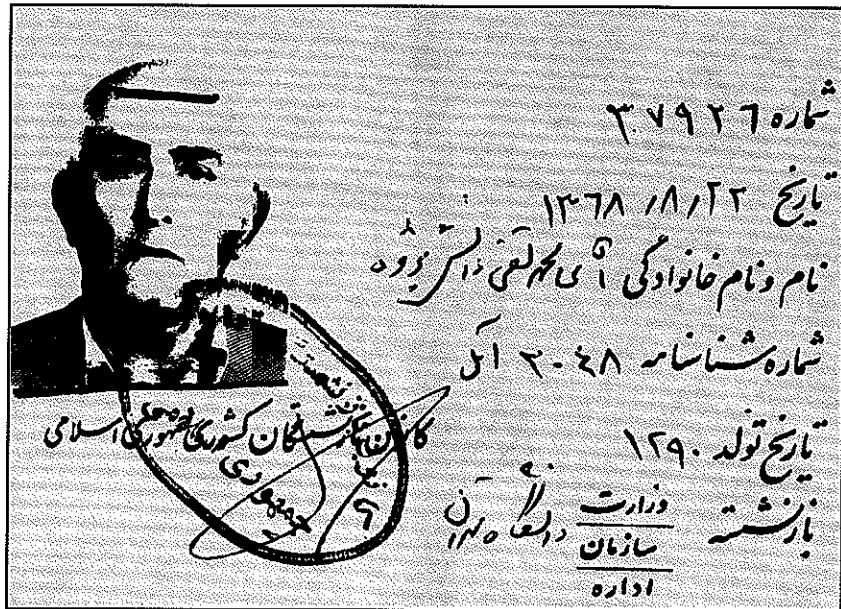 شماره ۳۰۷۹۲۶
تاریخ ۱۳۶۸/۸/۲۲
نام و نام خانوادگی آقای محمد تقی دانش پژوه
شماره شناسنامه ۲۰۴۸ آمل
تاریخ تولد ۱۲۹۰
بازنشسته وزارت
سازمان دانشگاه تهران
اداره
کانون بازنشستگان کشوری جمهوری اسلامی